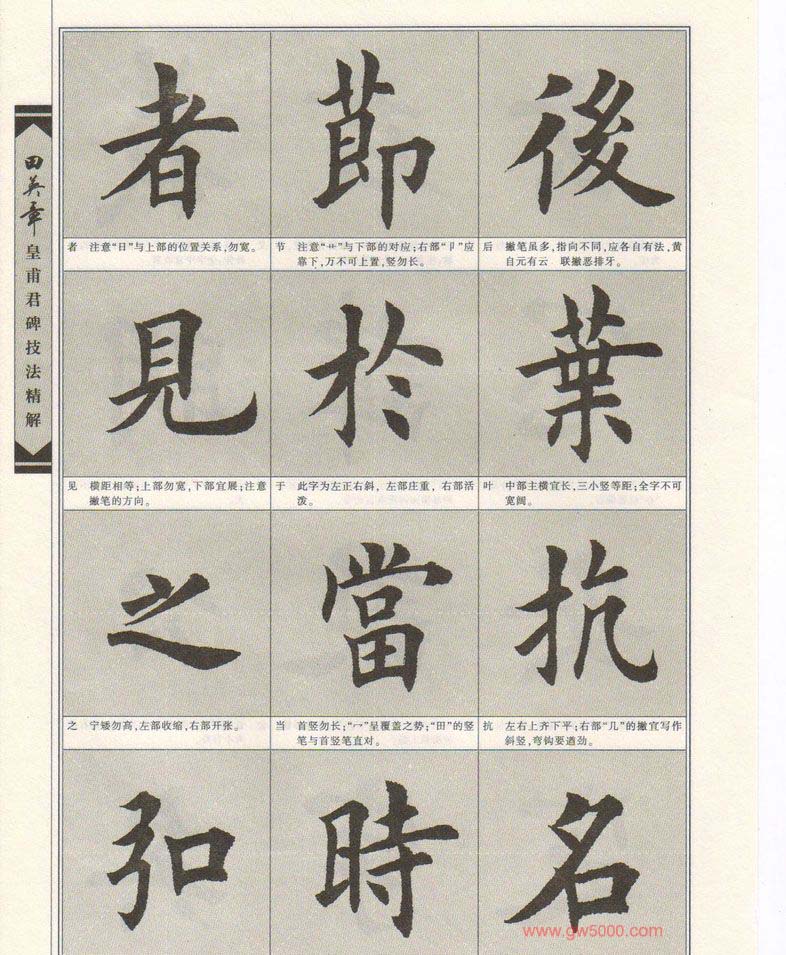 田英章
皇甫君碑技法精解
者
節
後
者 注意“日”与上部的位置关系,勿宽。
节 注意“艹”与下部的对应;右部“卩”应
靠下,万不可上置,竖勿长。
后 撇笔虽多,指向不同,应各自有法,黄
自元有云 联撇恶排牙。
見
於
葉
见 横距相等;上部勿宽,下部宜展;注意
撇笔的方向。
于 此字为左正右斜,左部庄重,右部活
泼。
叶 中部主横宜长,三小竖等距;全字不可
宽阔。
之
當
抗
之 宁矮勿高,左部收缩,右部开张。
当 首竖勿长;“冖”呈覆盖之势;“田”的竖
笔与首竖笔直对。
抗 左右上齐下平;右部“几”的撇宜写作
斜竖,弯钩要遒劲。
弘
時
名
www.gw5000.com